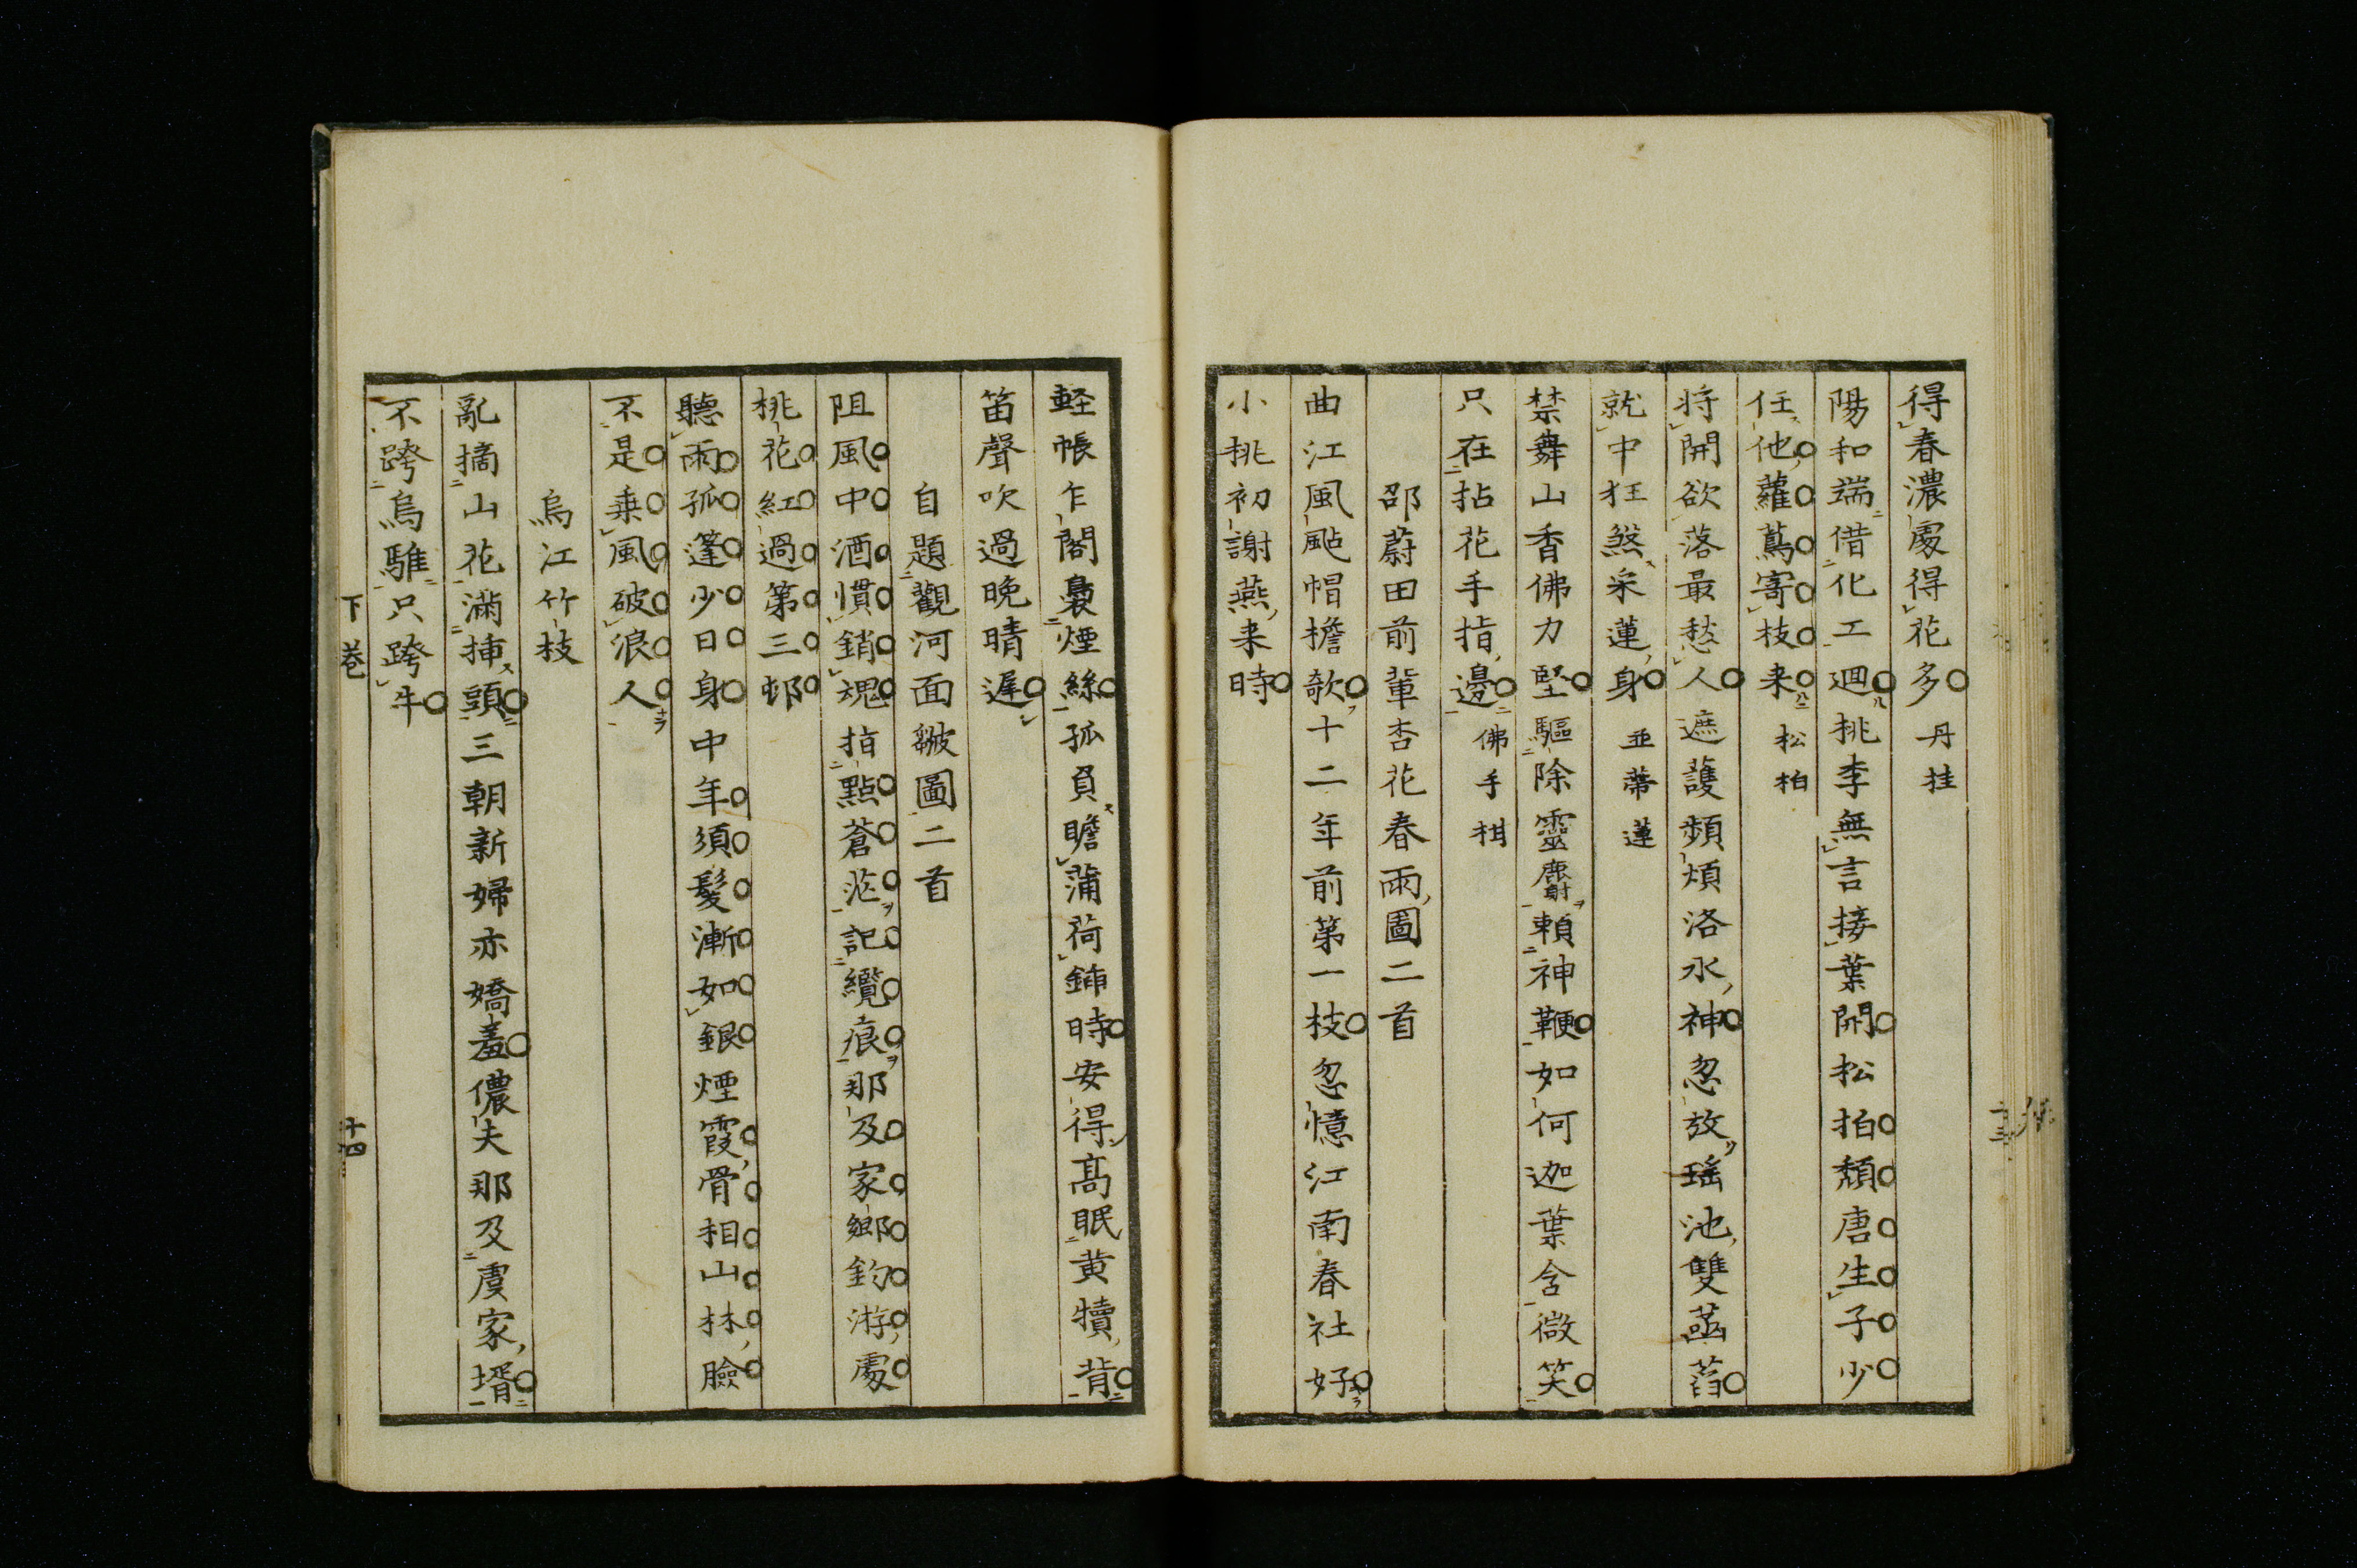 得春濃處得花多 丹桂
陽和端借化工廻桃李無言接葉開松柏頽唐生子少
任他蘿蔦寄枝来 松柏
将開欲落最愁人遮護頻煩洛水神忽放瑶池雙菡萏
就中狂煞采蓮身 並蒂蓮
禁舞山香佛力堅驅除靈麝頼神鞭如何迦葉含微笑
只在拈花手指邊 佛手柑
邵蔚田前輩杏花春雨圖二首
曲江風颭帽檐欹十二年前第一枝忽憶江南春社好
小桃初謝燕来時
軽帳乍閣裊煙絲孤負瞻蒲荷鍤時安得髙眠黄犢背
笛聲吹過晩晴遅
自題觀河面皺圖二首
阻風中酒慣銷魂指點蒼茫記纜痕那及家鄉釣游處
桃花紅過第三邨
聽雨孤篷少日身中年須髮漸如銀煙霞骨相山林臉
不是乗風破浪人
烏江竹枝
亂摘山花滿挿頭三朝新婦亦嬌羞儂夫那及虞家壻
不跨烏騅只跨牛
下巻
十四